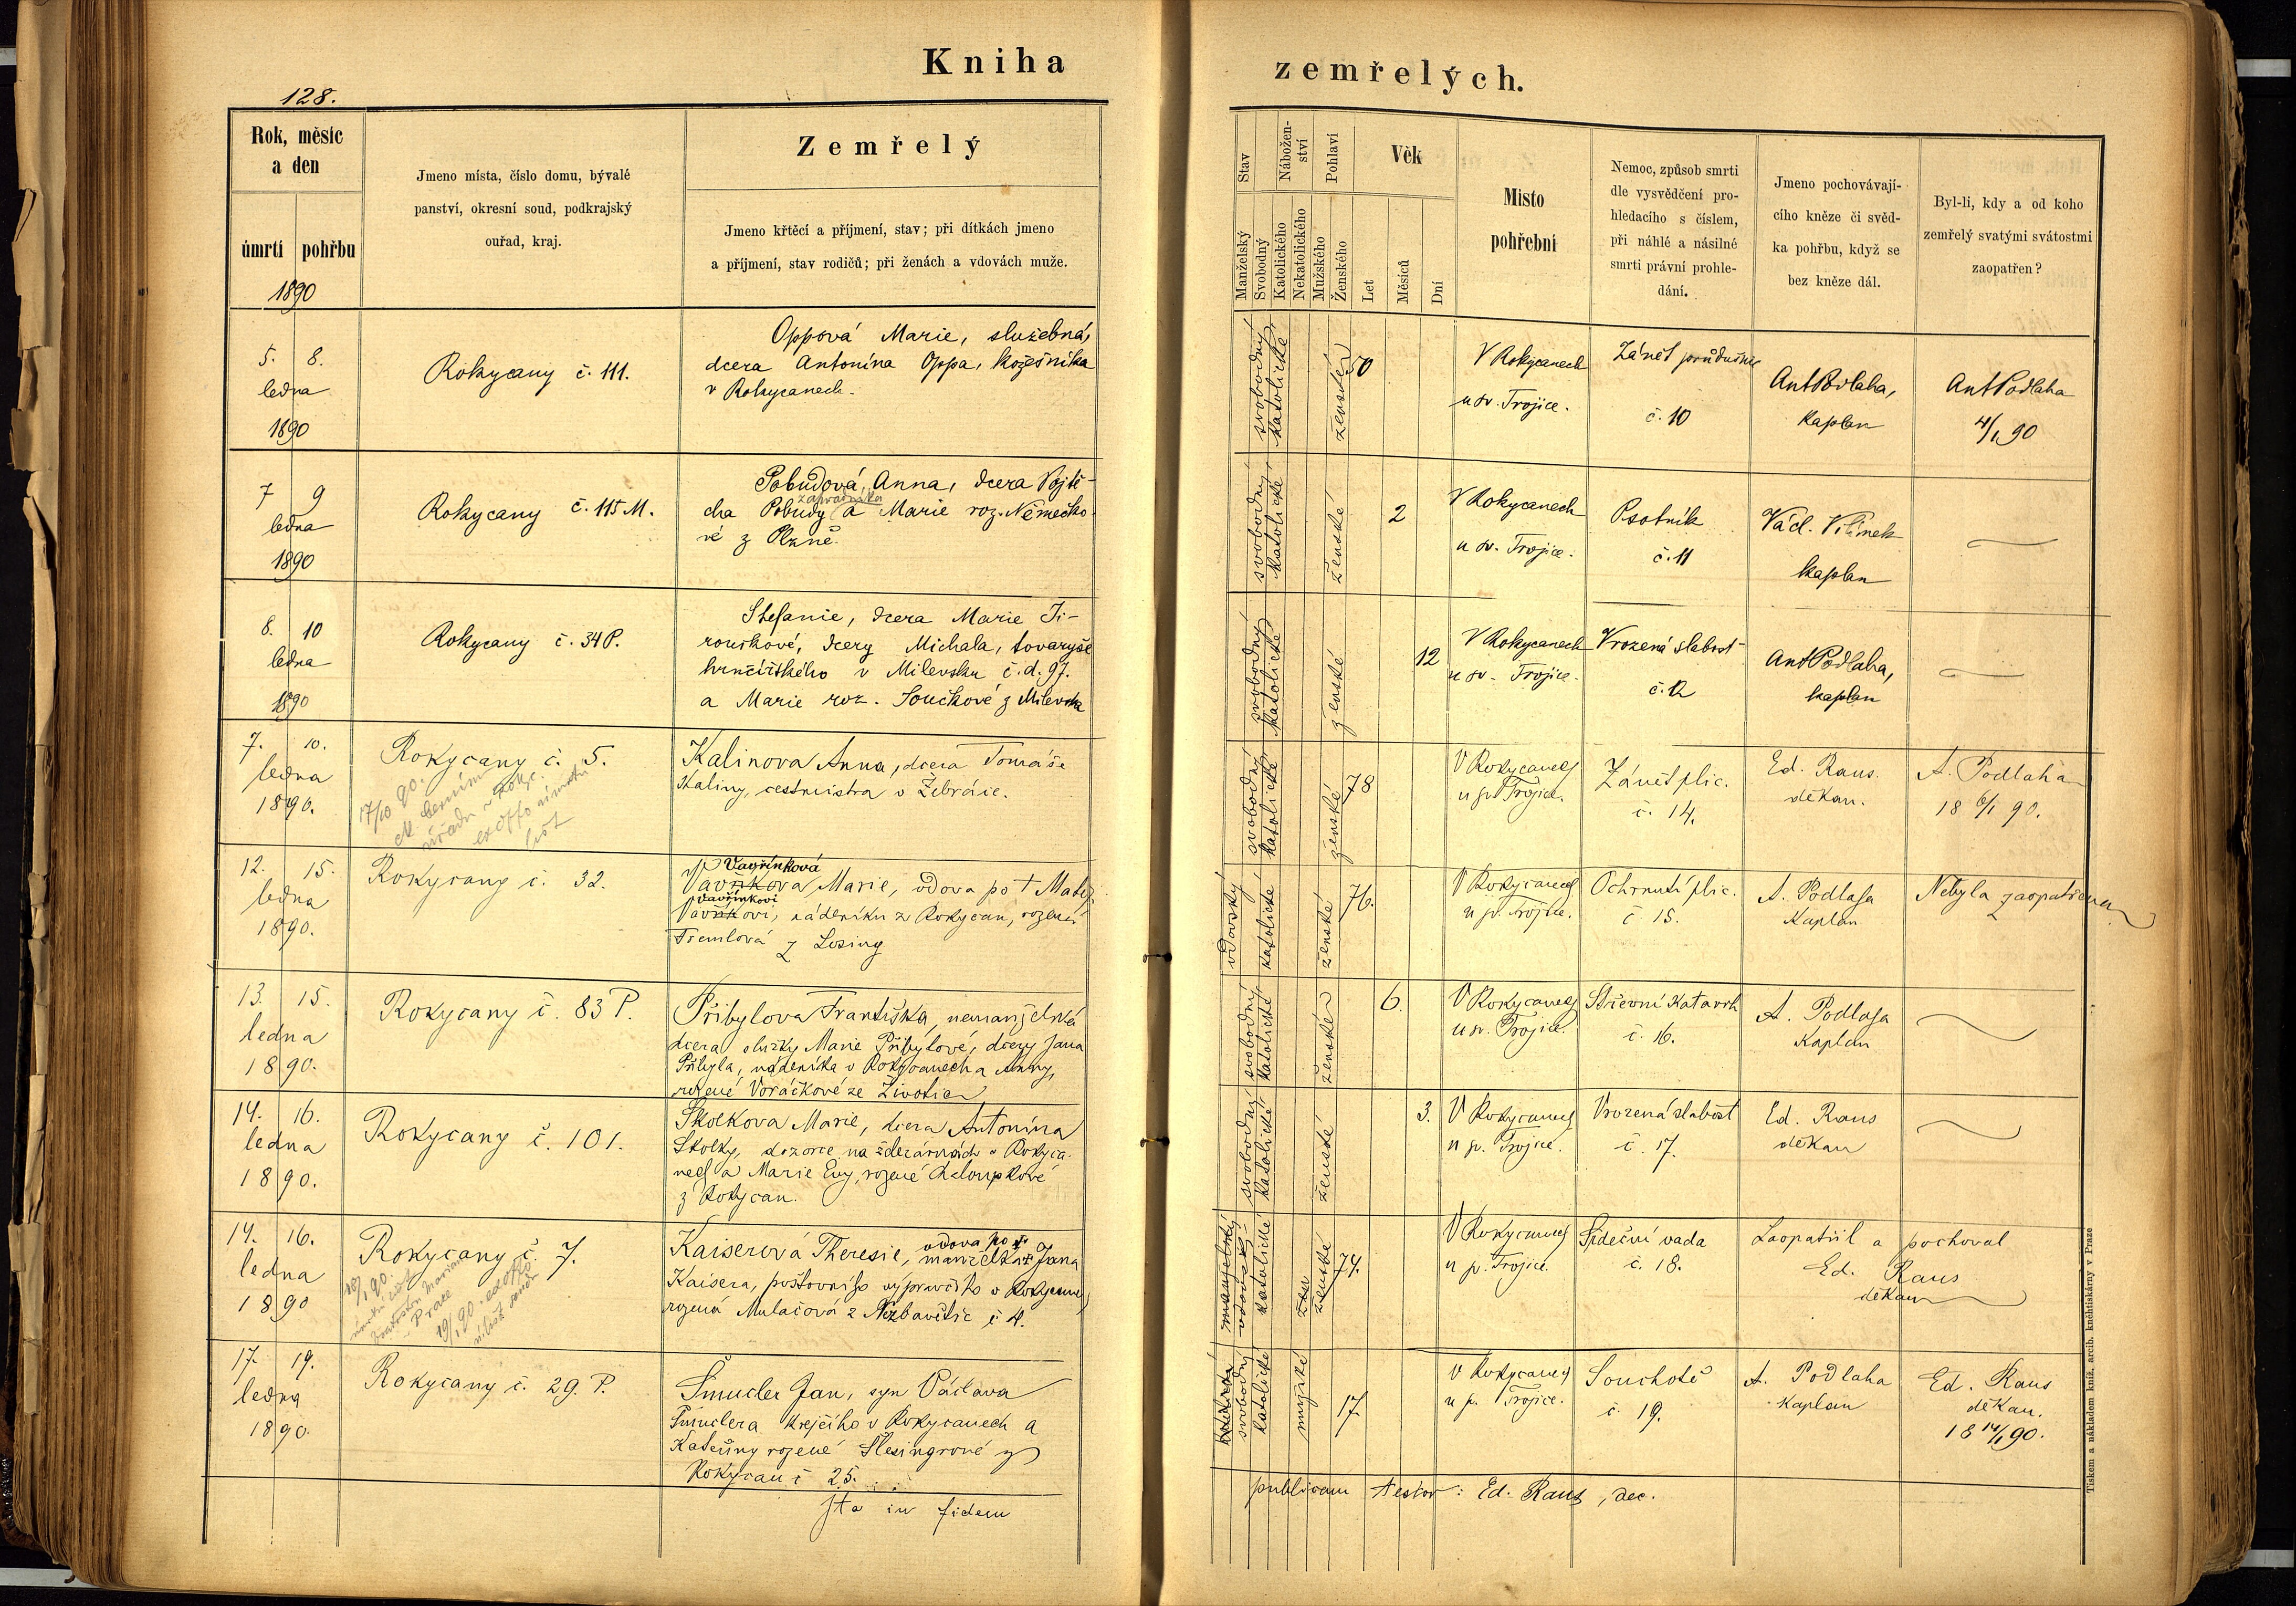 Kniha
zemřelých.
128.
Rok, měsíc
a den
úmrtí
pohřbu
1890
Jmeno místa, číslo domu, bývalé
panství, okresní soud, podkrajský
ouřad, kraj.
Zemřelý
Jmeno křtěcí a příjmení, stav; při dítkách jmeno
a příjmení, stav rodičů; při ženách a vdovách muže.
Stav
Manželský
Svobodný
Nábožen-
ství
Katolického
Nekatolického
Pohlaví
Mužského
Ženského
Věk
Let
Měsíců
Dní
Místo
pohřební
Nemoc, způsob smrti
dle vysvědčení pro-
hledacího s číslem,
při náhlé a násilné
smrti právní prohle-
dání.
Jmeno pochovávají-
cího kněze či svěd-
ka pohřbu, když se
bez kněze dál.
Byl-li, kdy a od koho
zemřelý svatými svátostmi
zaopatřen?
5. 8.
ledna
1890
Rokycany č. 111.
Oppová Marie, služebná,
dcera Antonína Oppa, kožešníka
v Rokycanech.
svobodný
katolické
ženské
50
V Rokycanech
u sv. Trojice.
Zánět průdušnic
č. 10
Ant Podlaha,
kaplan
Ant Podlaha
4/1 90
7 9
ledna
1890
Rokycany č. 115 M.
Pobudová Anna, dcera Vojtě-
zahradníka
cha Pobudy a Marie roz. Německo-
vé z Plzně.
svobodný
katolické
ženské
2
V Rokycanech
u sv. Trojice.
Psotník
č. 11
Václ. Vilímek
kaplan
8. 10
ledna
1890
Rokycany č. 34 P.
Stefanie, dcera Marie Ji-
rouškové, dcery Michala, tovaryše
hrnčířského v Milevsku č.d. 97.
a Marie roz. Součkové z Milevska
svobodný
katolické
ženské
12
V Rokycanech
u sv. Trojice.
Vrozená slabost
č. 12
Ant Podlaha,
kaplan
7. 10.
ledna
1890.
Rokycany č. 5.
17/10 90.
ex offo
list
Kalinova Anna, dcera Tomáše
Kaliny, cestmistra v Žebráce.
svobodný
katolické
ženské
78
V Rokycanech
u sv. Trojice.
Zánět plic.
č. 14.
Ed. Raus.
děkan.
A. Podlaha
18 6/1 90.
12. 15.
ledna
1890.
Rokycany č. 32.
Vavřínková
Vavříkova Marie, vdova po † Matěj.
Vavřínkovi
Vavříkovi, nádeníku z Rokycan, rozená
Tremlová z Losiny
vdovský
katolické
ženské
76.
V Rokycanech
u sv. Trojice.
Ochrnutí plic.
č. 15.
A. Podlaha
Kaplan
Nebyla zaopatřena
13. 15.
ledna
1890.
Rokycany č. 83 P.
Přibylova Františka, nemanželská
dcera služky Marie Přibylové, dcery Jana
Přibyla, nádeníka v Rokycanech a Anny,
rozené Voráčkové ze Životic
svobodný
katolické
ženské
6.
V Rokycanech
u sv. Trojice.
Střevní Katarrh
č. 16.
A. Podlaha
Kaplan
14. 16.
ledna
1890.
Rokycany č. 101.
Skolkova Marie, dcera Antonína
Skolky, dozorce na železárnách v Rokyca-
nech a Marie Evy, rozené Chloupkové
z Rokycan.
svobodný
katolické
ženské
3.
V Rokycanech
u sv. Trojice.
Vrozená slabost
č. 17.
Ed. Raus
děkan
14. 16.
ledna
1890
Rokycany č. 7.
18/1 90.
19/1 90. ex offo
Kaiserová Theresie, vdova po † manželka Jana
Kaisera, poštovního výpravčího v Rokycanech
rozená Mulačová z Nezbavětic č 4.
manželský
vdovský
katolické
ženské
74.
V Rokycanech
u sv. Trojice.
Srdeční vada
č. 18.
Zaopatřil a pochoval
Ed. Raus
děkan
17. 19.
ledna
1890.
Rokycany č. 29. P.
Šmucler Jan, syn Václava
Šmuclera krejčího v Rokycanech a
Kateřiny rozené Šlesingrové z
Rokycan č 25.
svobodný
katolické
mužské
17.
V Rokycanech
u sv. Trojice.
Souchotě
č. 19.
A. Podlaha
Kaplan
Ed. Raus
děkan.
18 14/1 90.
Ita in fidem
publicam testor: Ed. Raus, dec.
Tiskem a nákladem kníž. arcib. kněhtiskárny v Praze